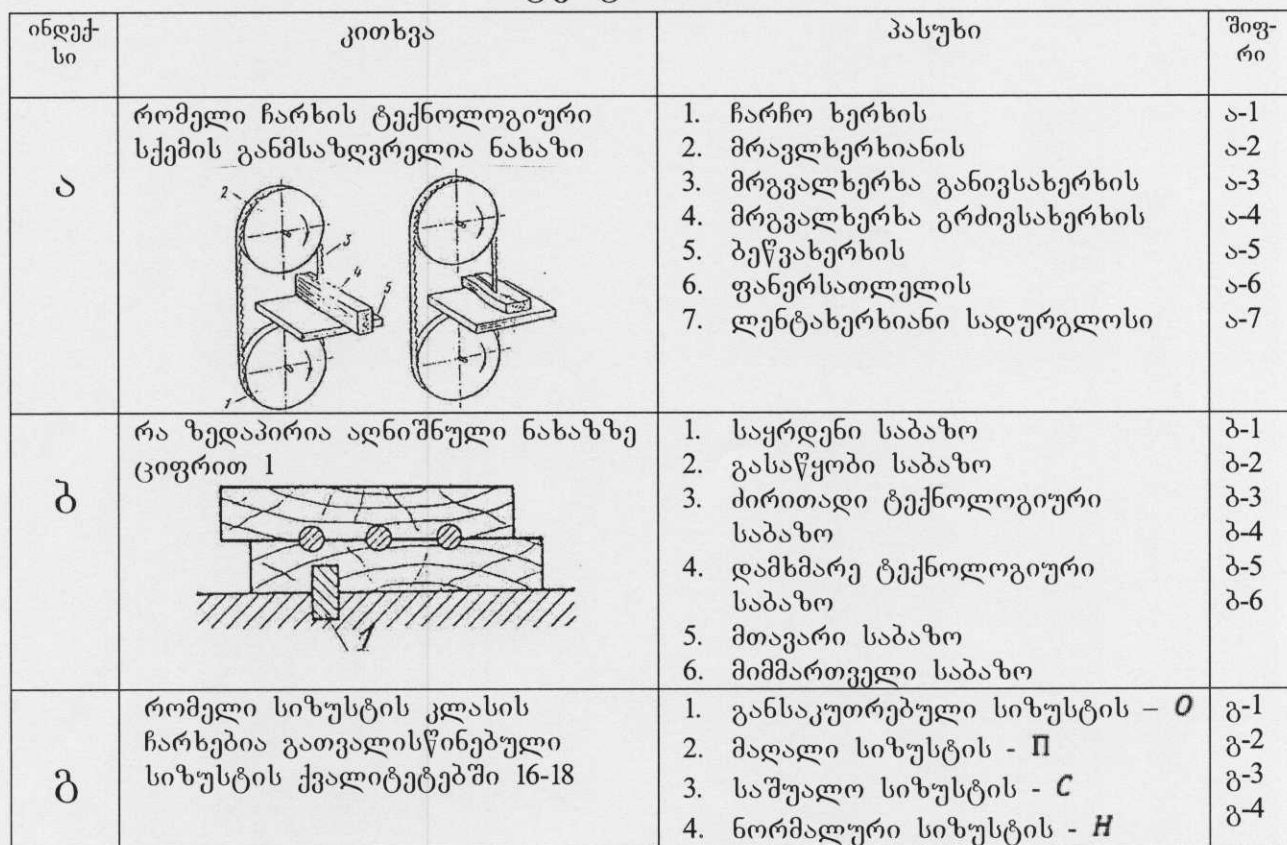 ინდექ-
სი
კითხვა
პასუხი
შიფ-
რი
ა
რომელი ჩარხის ტექნოლოგიური
სქემის განმსაზღვრელია ნახაზი
2
3
4
5
1
1. ჩარჩო ხერხის
2. მრავლხერხიანის
3. მრგვალხერხა განივსახერხის
4. მრგვალხერხა გრძივსახერხის
5. ბეწვახერხის
6. ფანერსათლელის
7. ლენტახერხიანი სადურგლოსი
ა-1
ა-2
ა-3
ა-4
ა-5
ა-6
ა-7
ბ
რა ზედაპირია აღნიშნული ნახაზზე
ციფრით 1
1
1. საყრდენი საბაზო
2. გასაწყობი საბაზო
3. ძირითადი ტექნოლოგიური
საბაზო
4. დამხმარე ტექნოლოგიური
საბაზო
5. მთავარი საბაზო
6. მიმმართველი საბაზო
ბ-1
ბ-2
ბ-3
ბ-4
ბ-5
ბ-6
გ
რომელი სიზუსტის კლასის
ჩარხებია გათვალისწინებული
სიზუსტის ქვალიტეტებში 16-18
1. განსაკუთრებული სიზუსტის – О
2. მაღალი სიზუსტის - П
3. საშუალო სიზუსტის - С
4. ნორმალური სიზუსტის - Н
გ-1
გ-2
გ-3
გ-4